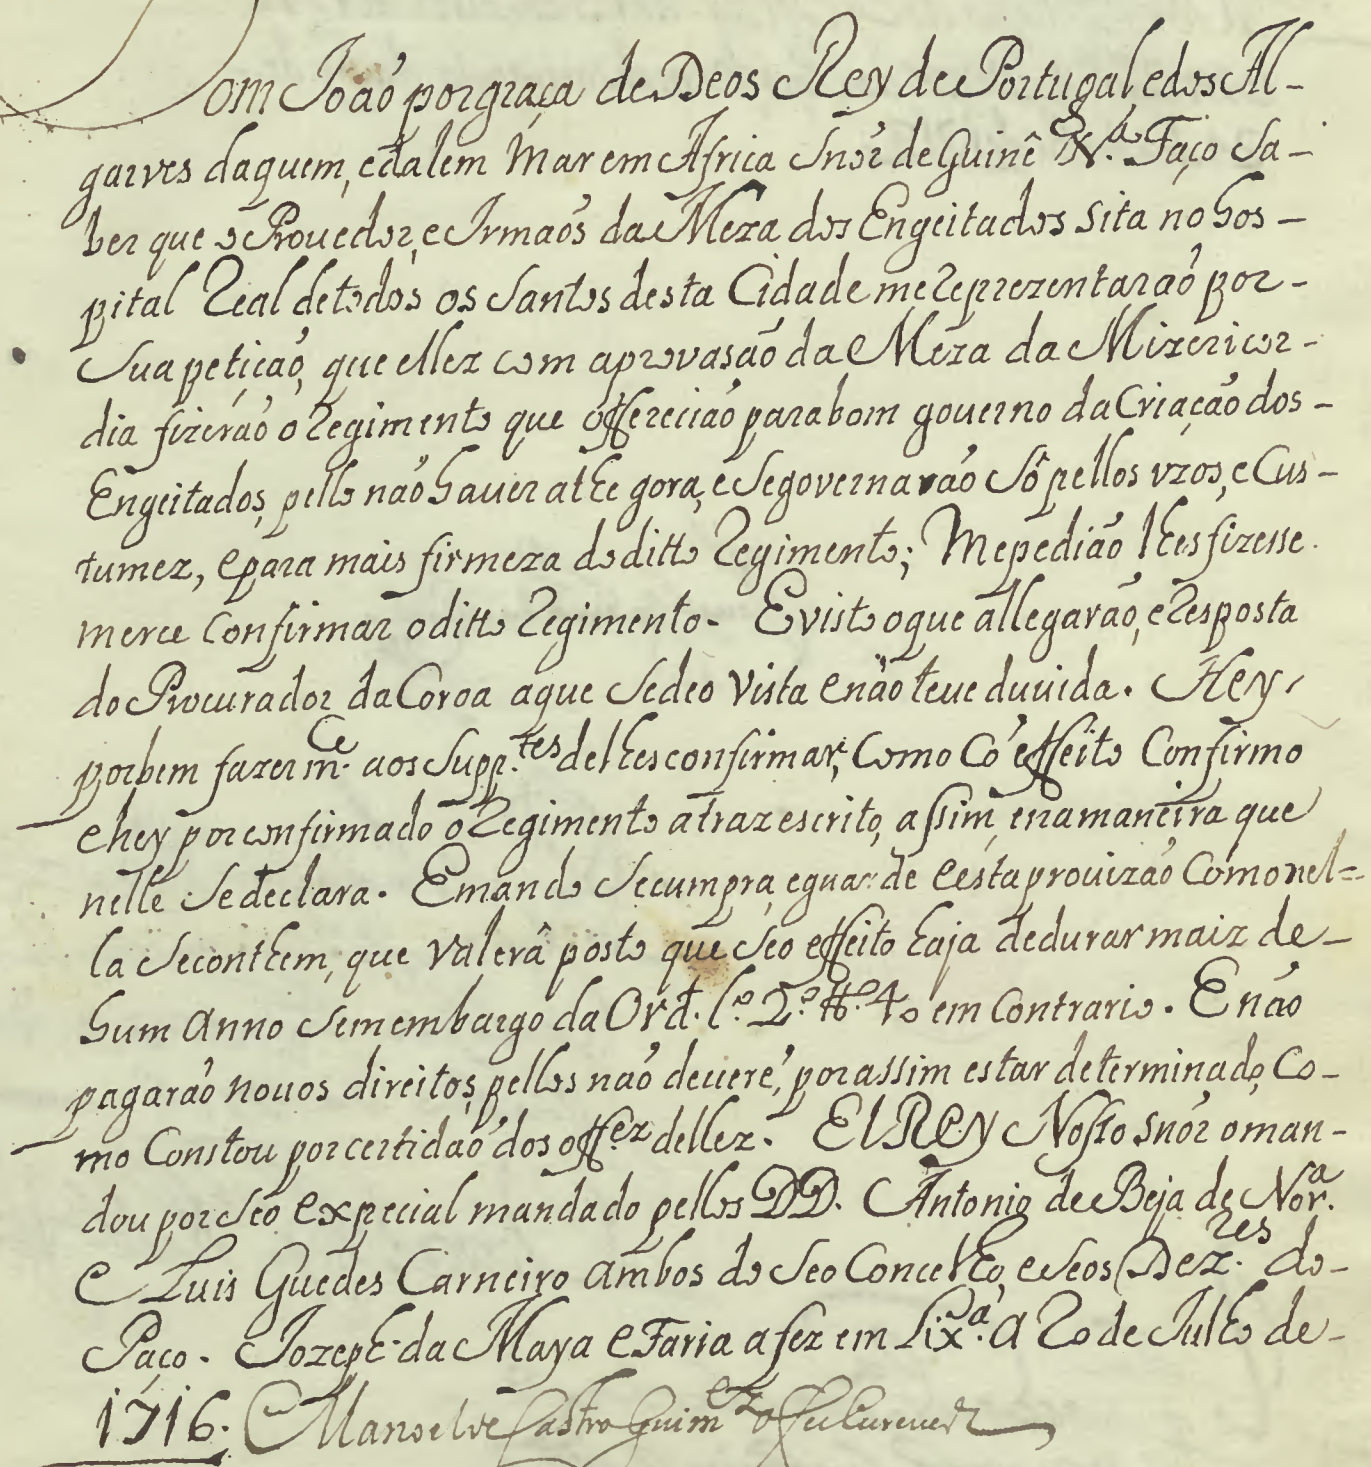 Dom João por graça de Deos Rey de Portugal, e dos Al-
garves daquem, e dalem Mar em Africa Snõr de Guinê &.ª Faço Sa-
ber que o Provedor, e Irmaõs da Meza dos Engeitados sita no hos-
pital Real de todos os Santos desta Cidade me reprezentaraõ por-
Sua petição, que ellez com aprovasão da Meza da Mizericor-
dia fizeraõ o Regimento que offereciaõ para bom governo da Criação dos-
Engeitados, pello naõ haver athe gora, e Se governavaõ Sô pellos vzos, e Cus-
tumez, e para mais firmeza do ditto Regimento; Me pediaõ lhes fizesse
merce Confirmar o ditto Regimento. E visto o que allegaraõ, e resposta
do Procurador da Coroa a que Se deo Vista e naõ teve duvida. Hey
por bem fazer m.ce aos Supp.tes de lhes confirmar, Como Cõ effeito Confirmo
e hey por confirmado o Regimento atraz escrito, assim, e na maneira que
nelle Se declara. E mando Se cumpra, e guarde e esta provizaõ Como nel=
la Se conthem, que Valerâ posto que Seo effeito haja de durar maiz de-
hum Anno Sem embargo da Ord. l.º 2.º tt.º 40 em Contrario. E naõ
pagaraõ novos direitos, pellos naõ deverẽ, por assim estar determinado, Co-
mo Constou por certidaõ dos off.ez dellez. El Rey Nosso Snõr o man-
dou por Seo expecial mandado pellos DD. Antonio de Beja de Nor.ª
e Luis Guedes Carneiro ambos do Seo Concelho, e Seos Dez.res do-
Paço. Jozeph da Maya e Faria a fez em Lix.ª a 20 de Julho de-
1716. Manoel de Castro Guim.ez o